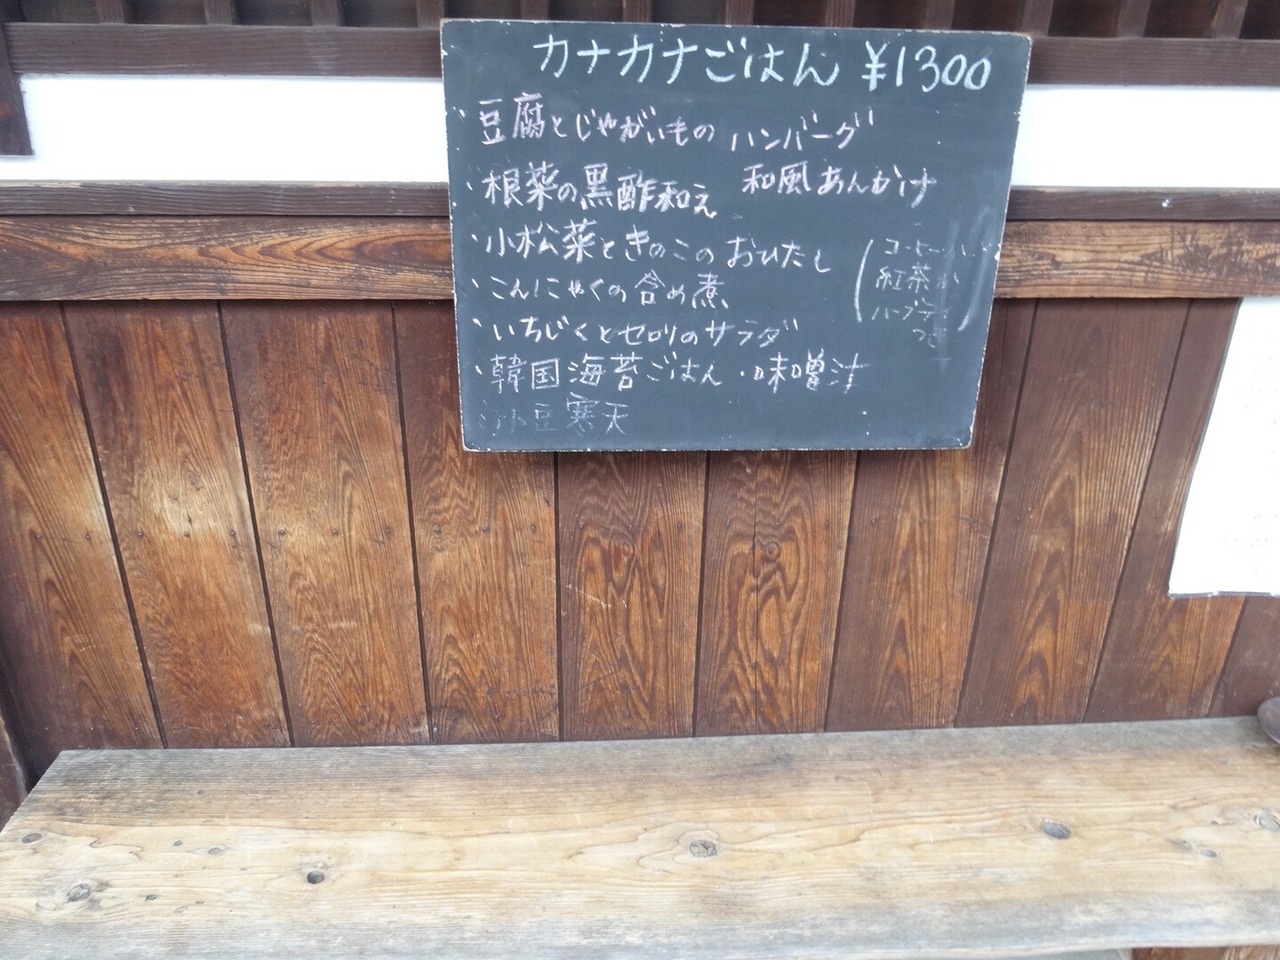 カナカナごはん ¥1300
・豆腐とじゃがいものハンバーグ
和風あんかけ
・根菜の黒酢和え
・小松菜ときのこのおひたし
・こんにゃくの含め煮
・いちじくとセロリのサラダ
・韓国海苔ごはん・味噌汁
小豆寒天
(コーヒー
紅茶
ハーブティ)